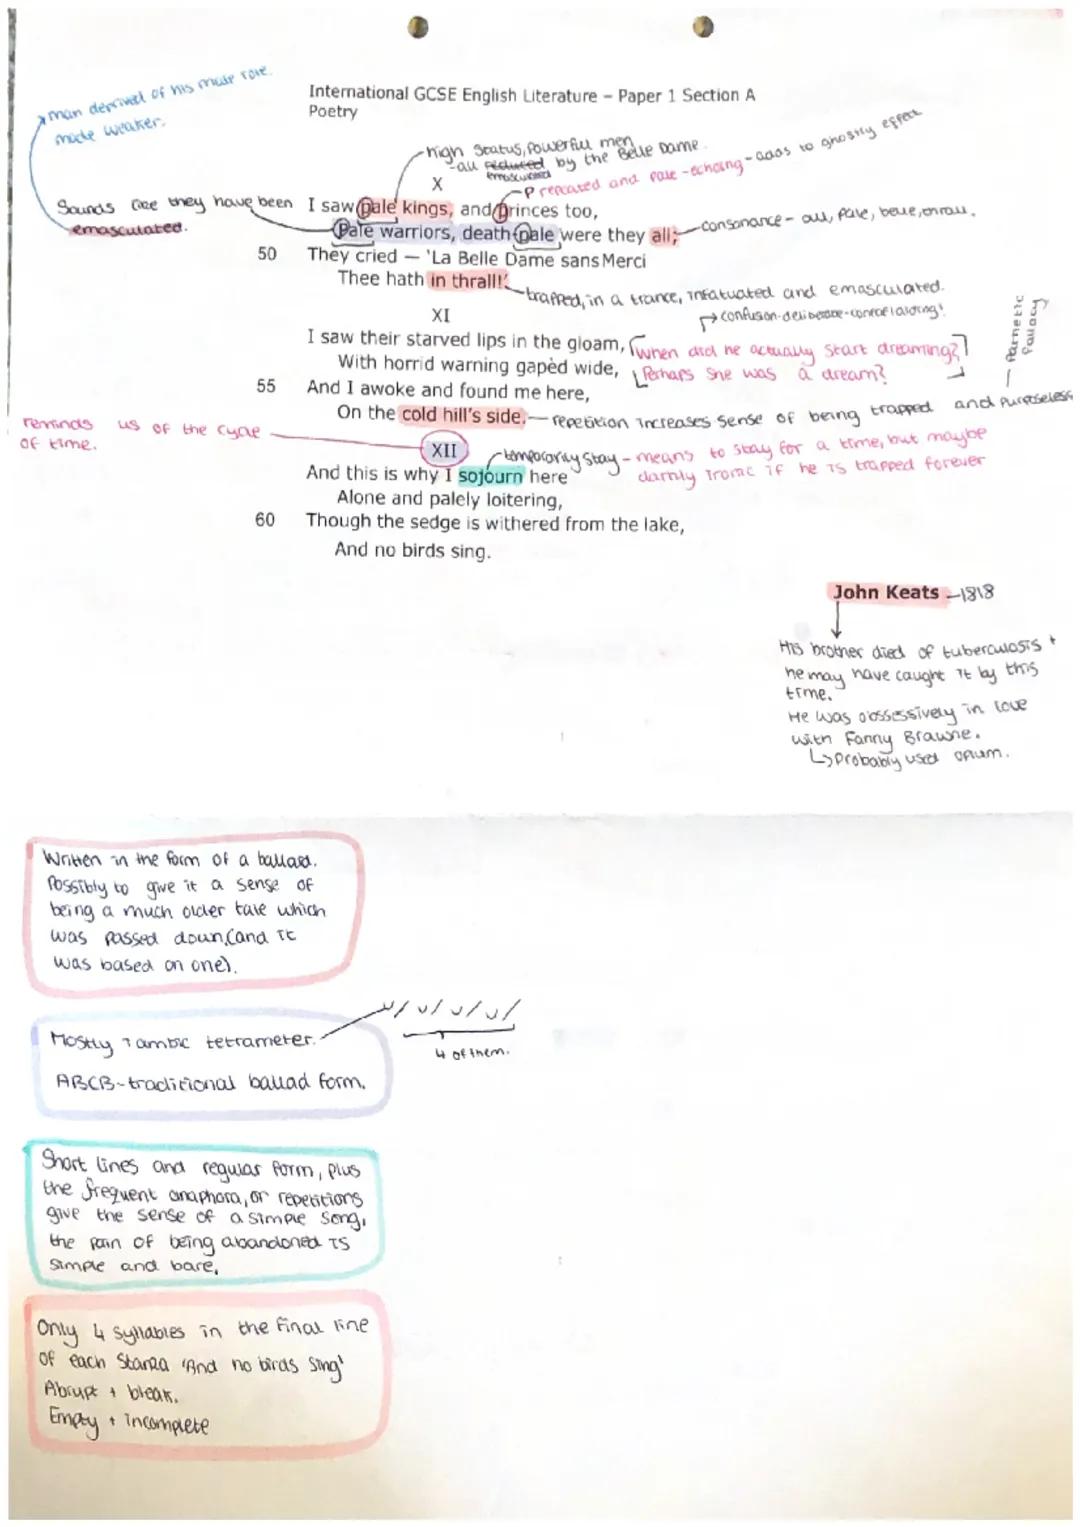 man deprived of his male role.
made weaker.
International GCSE English Literature – Paper 1 Section A
Poetry
high status, powerful men
-all reduced by the Belle Dame.
emasculated
P repeated and pale - echoing - adds to ghostly effect
X
Sounds like they have been
emasculated.
I saw pale kings, and princes too,
Pale warriors, death-pale were they all;
consonance - all, pale, belle, thrall.
50 They cried — 'La Belle Dame sans Merci
Thee hath in thrall!'
trapped, in a trance, infatuated and emasculated.
XI
confusion-deliberate-
I saw their starved lips in the gloam,
When did he actually start dreaming?
With horrid warning gapèd wide,
Perhaps she was a dream?
55 And I awoke and found me here,
On the cold hill's side.
repetition increases sense of being trapped and purposeless
fallacy
reminds us of the cycle
of time.
XII
temporarily stay - means to stay for a time, but maybe
darkly ironic if he is trapped forever
And this is why I sojourn here
Alone and palely loitering,
60 Though the sedge is withered from the lake,
And no birds sing.
John Keats - 1818
His brother died of tuberculosis +
he may have caught it by this
time.
He was obssessively in love
with Fanny Brawne.
Probably used opium.
Written in the form of a ballad.
Possibly to give it a sense of
being a much older tale which
was passed down, (and it
was based on one).
Mostly iambic tetrameter.
u/ u/ u/ u/
4 of them.
ABCB - traditional ballad form.
Short lines and regular form, plus
the frequent anaphora, or repetitions
give the sense of a simple song,
the pain of being abandoned is
simple and bare.
Only 4 syllables in the final line
of each stanza 'And no birds sing'
Abrupt + bleak.
Empty + incomplete